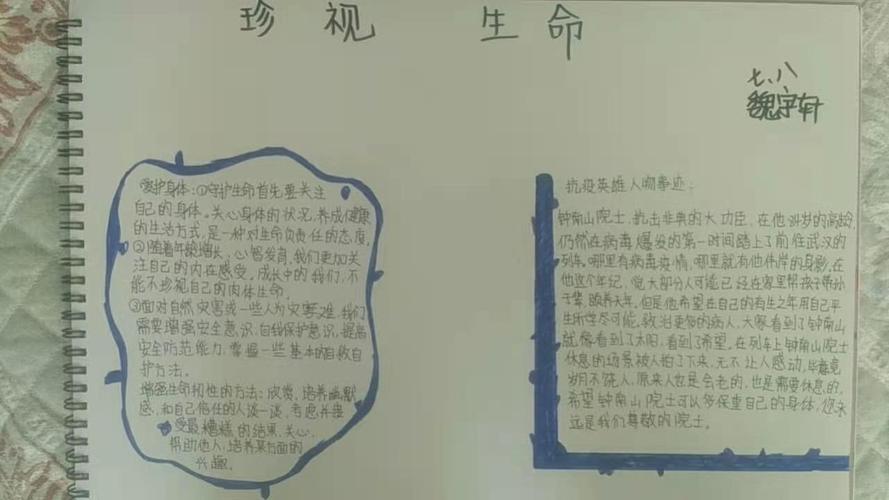 珍视 生命
七、八
魏宇轩
爱护身体:①守护生命首先要关注
自己的身体。关心身体的状况,养成健康
的生活方式,是一种对生命负责任的态度。
②随着年龄增长、心智发育,我们更加关
注自己的内在感受。成长中的我们,不
能不珍视自己的肉体生命。
③面对自然灾害或一些人为灾害难,我们
需要增强安全意识、自我保护意识,提高
安全防范能力,掌握一些基本的自救自
护方法。
增强生命韧性的方法:欣赏,培养幽默
感,和自己信任的人谈一谈,考虑并接
受最糟糕的结果,关心、
帮助他人,培养某方面的
兴趣。
抗疫英雄人物事迹:
钟南山院士,抗击非典的大功臣,在他84岁的高龄,
仍然在病毒爆发的第一时间踏上了前往武汉的
列车。哪里有病毒疫情,哪里就有他伟岸的身影,在
他这个年纪,大部分人可能已经在家里帮孩子带孙
子辈,颐养天年。但是他希望在自己的有生之年用自己平
生所学尽可能,救治更多的病人,大家看到了钟南山
就像看到了太阳,看到了希望,在列车上钟南山院士
休息的场景被人拍了下来,无不让人感动,毕竟
岁月不饶人,原来人也是会老的,也是需要休息的,
希望钟南山院士可以多保重自己的身体,您永
远是我们尊敬的院士。